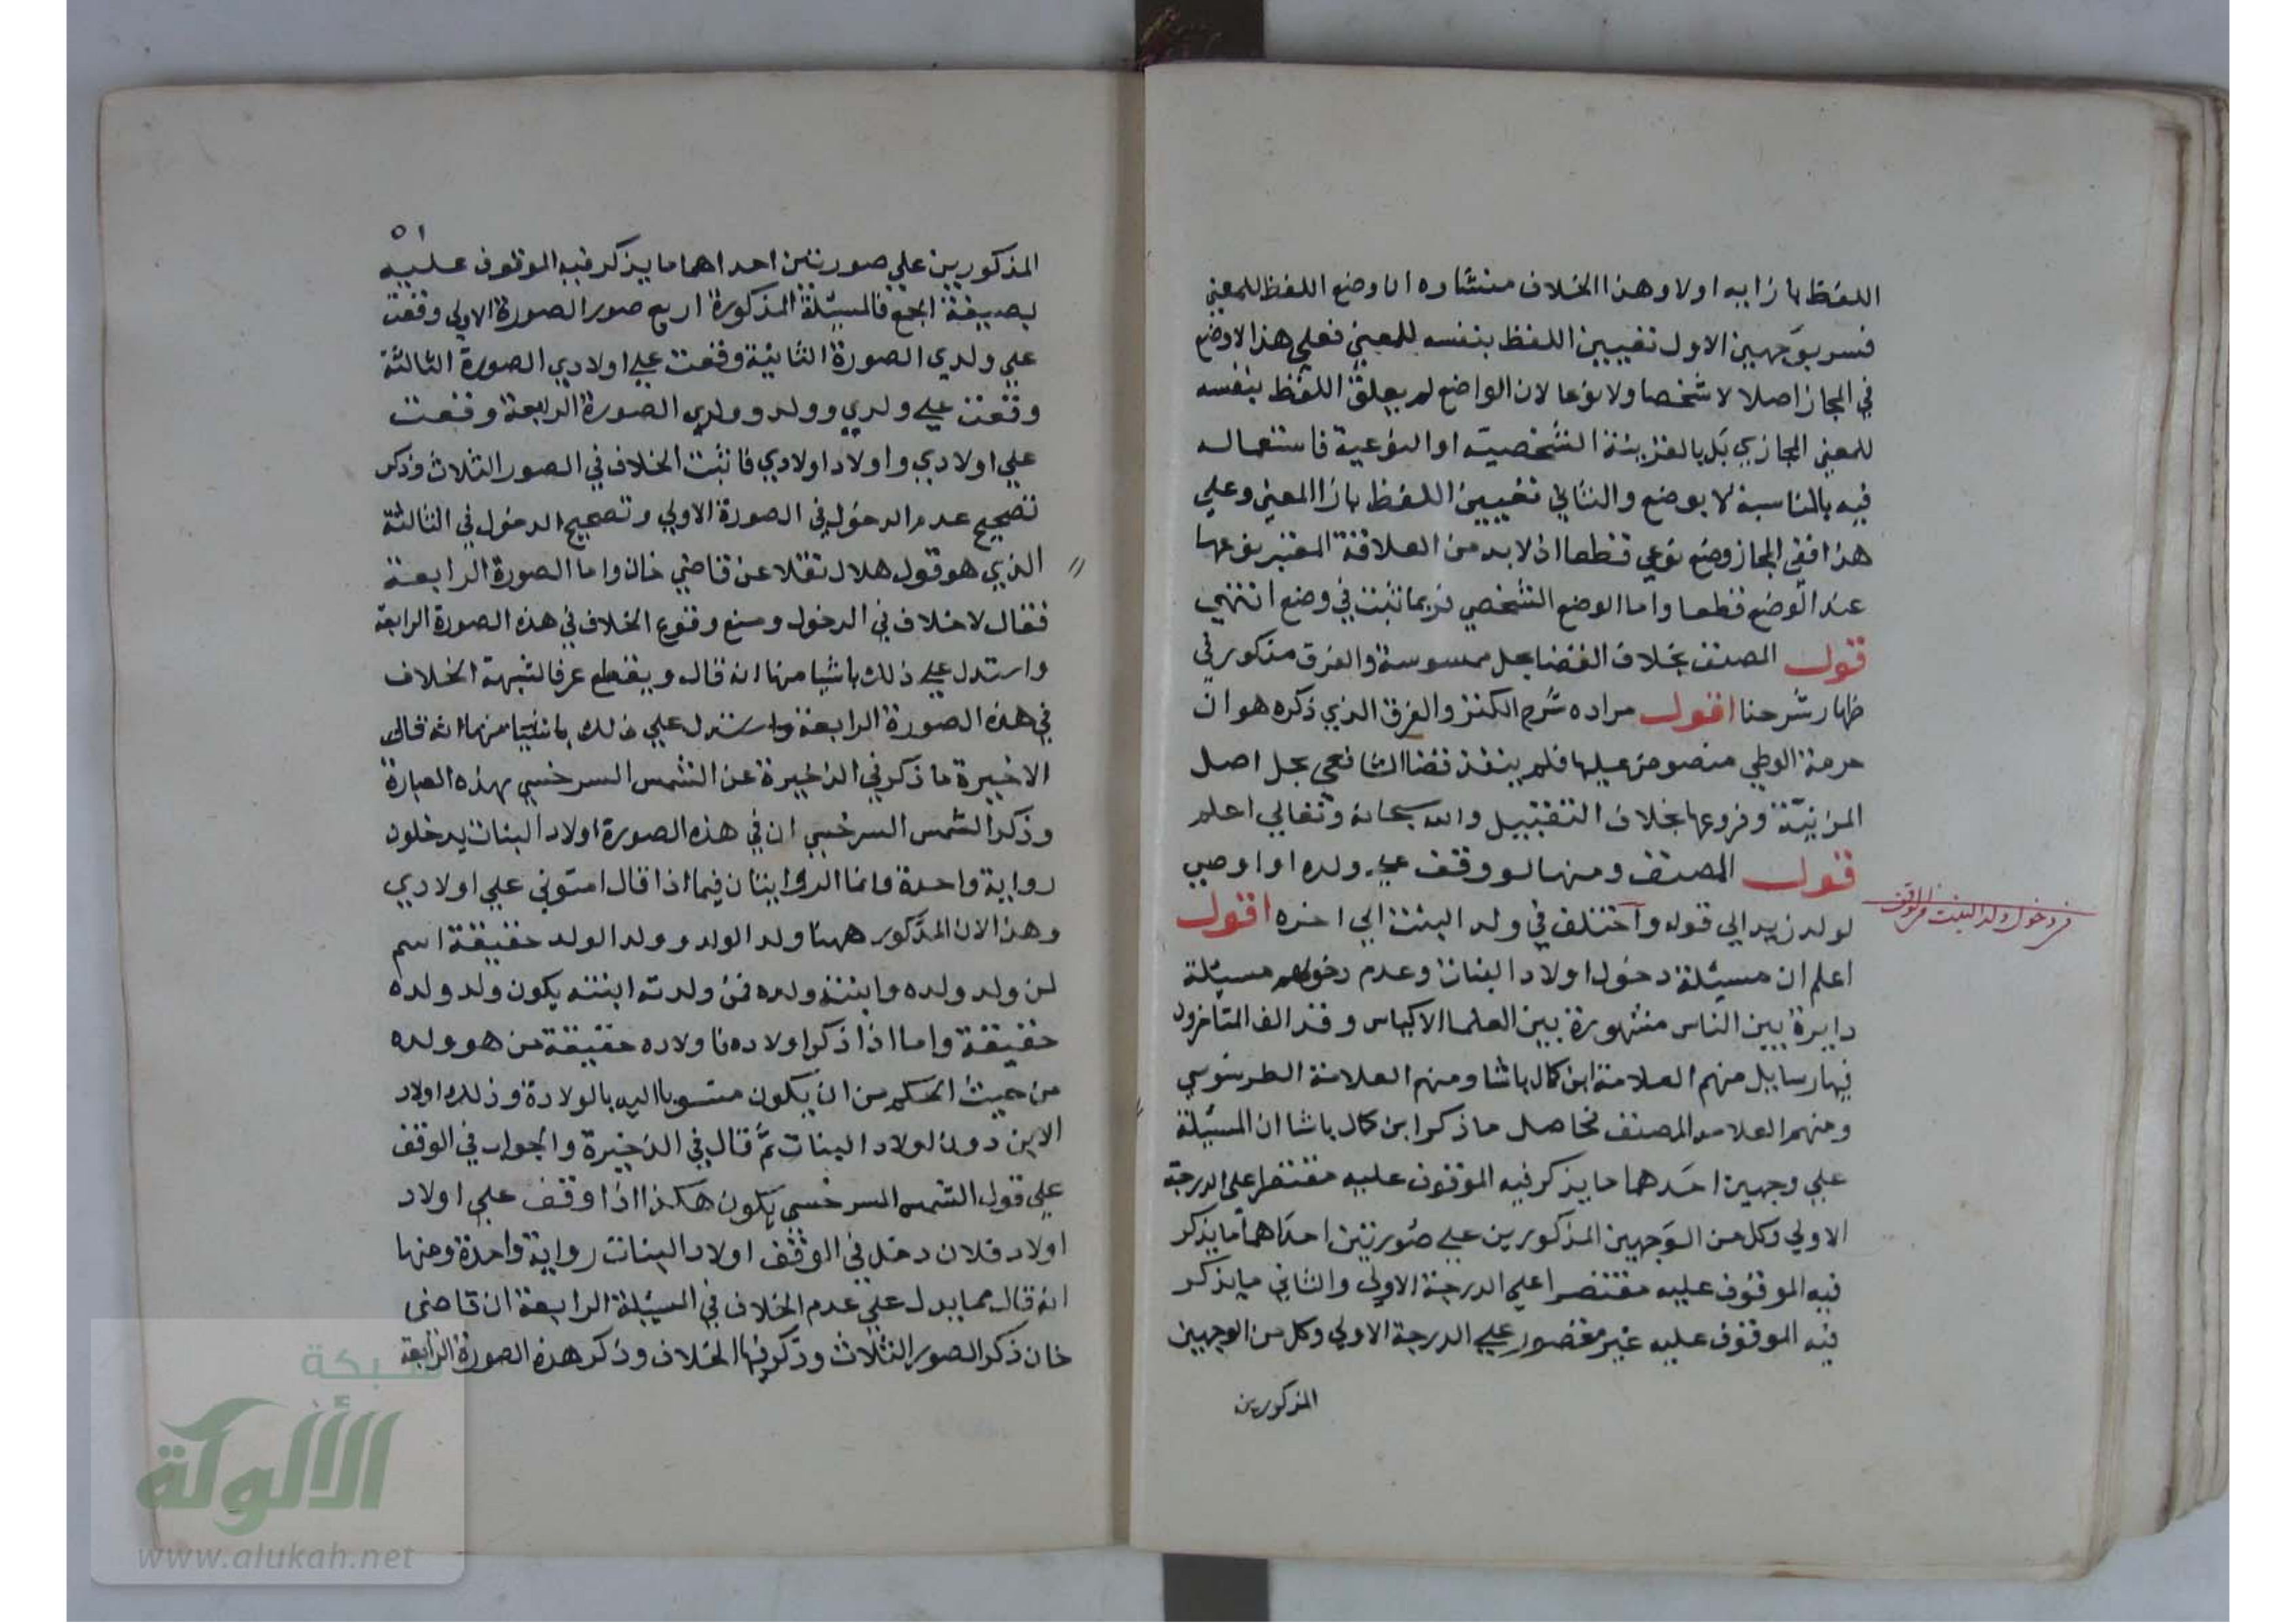 اللفظ بازايه اولا وهذا الخلاف منشاوه ان وضع اللفظ للمعني
فسر بوجهين الاول تعيين اللفظ بنفسه للمعني فعلي هذا لاوضع
في المجاز اصلا لا شخصا ولا نوعا لان الواضع لم يعلق اللفظ بنفسه
للمعني المجازي بل بالقرينة الشخصية او النوعية فاستعماله
فيه بالمناسبة لا بوضع والثاني تعيين اللفظ بازا المعني وعلي
هذا ففي المجاز وضع نوعي قطعا اذ لا بد من العلاقة المعتبر نوعها
عند الوضع قطعا واما الوضع الشخصي فربما ثبت في وضع انتهي
قول المصنف بخلاف القضا بحل ممسوسة والفرق مذكور في
ظهار شرحنا اقول مراده شرح الكنز والفرق الذي ذكره هو ان
حرمة الوطي منصوص عليها فلم ينفذ قضا الشافعي بحل اصل
المزنية وفروعها بخلاف التقبيل والله سبحانه وتعالي اعلم
قول المصنف ومنها لو وقف علي ولده او اوصي
لولد زيد الي قوله وآختلف في ولد البنت الي اخره اقول
اعلم ان مسيلة دخول اولاد البنات وعدم دخولهم مسيلة
دايرة بين الناس مشهورة بين العلما الاكياس وقد الف المتاخرون
فيها رسايل منهم العلامة ابن كمال باشا ومنهم العلامة الطرسوسي
ومنهم العلامه المصنف فحاصل ما ذكر ابن كمال باشا ان المسيلة
علي وجهين احدهما ما يذكر فيه الموقوف عليه مقتصرا علي الدرجة
الاولي وكل من الوجهين المذكورين علي صورتين احداهما ما يذكر
فيه الموقوف عليه مقتصرا علي الدرجة الاولي والثاني ما يذكر
فيه الموقوف عليه غير مقصور علي الدرجة الاولي وكل من الوجهين
المذكورين
في دخول ولد البنت في الوقف
٥١
المذكورين علي صورتين احداهما ما يذكر فيه الموقوف عليه
بصيغة الجمع فالمسيلة المذكورة اربع صور الصورة الاولي وقفت
علي ولدي الصورة الثانية وقفت علي اولادي الصورة الثالثة
وقفت علي ولدي وولد وولدي الصورة الرابعة وقفت
علي اولادي واولاد اولادي فاثبت الخلاف في الصور الثلاث وذكر
تصحيح عدم الدخول في الصورة الاولي وتصحيح الدخول في الثالثة
الذي هو قول هلال نقلا عن قاضي خان واما الصورة الرابعة
فقال لا خلاف في الدخول ومنع وقوع الخلاف في هذه الصورة الرابعة
واستدل علي ذلك باشيا منها انه قال ويقطع عرق الشبهة الخلاف
في هذه الصورة الرابعة واستدل علي ذلك باشيا منها انه قال
الاخيرة ما ذكر في الذخيرة عن الشمس السرخسي بهذه العبارة
وذكر الشمس السرخسي ان في هذه الصورة اولاد البنات يدخلون
رواية واحدة وانما الروايتان فيما اذا قال امنوني علي اولادي
وهذا لان المذكور ههنا ولد الولد وولد الولد حقيقة اسم
لمن ولد ولده وابنته ولده فمن ولدته ابنته يكون ولد ولده
حقيقة واما اذا ذكر اولاده فاولاده حقيقة من هو ولده
من حيث الحكم من ان يكون منسوبا اليه بالولادة وذلك اولاد
الابن دون اولاد البنات ثم قال في الذخيرة والجواب في الوقف
علي قول الشمس السرخسي يكون هكذا اذا وقف علي اولاد
اولاد فلان دخل في الوقف اولاد البنات رواية واحدة ومنها
انه قال مما يدل علي عدم الخلاف في المسيلة الرابعة ان قاضي
خان ذكر الصور الثلاث وذكر فيها الخلاف وذكر هذه الصورة الرابعة
شبكة
الألوكة
www.alukah.net